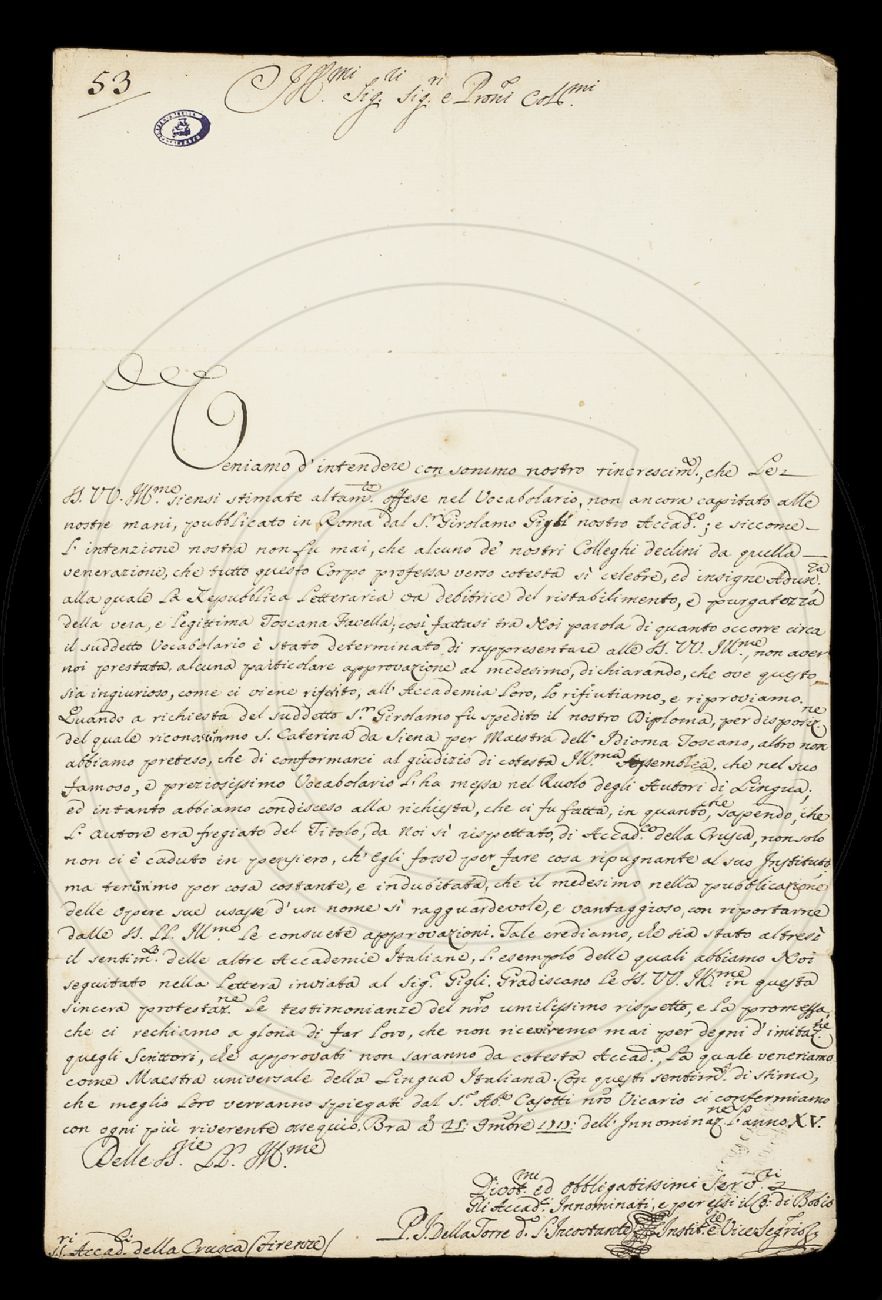 53
Ill.mi Sig.ri Sig.ri e Pron.i Col.mi
Veniamo d'intendere con sommo nostro rincrescim.o, che Le
SS. VV. Ill.me siensi stimate altam.te offese nel Vocabolario, non ancora capitato alle
nostre mani, pubblicato in Roma dal S.r Girolamo Gigli nostro Accad.o; e siccome
l'intenzione nostra non fu mai, che alcuno de' nostri Colleghi declini da quella
venerazione, che tutto questo Corpo professa verso cotesta sì celebre, ed insigne Adun.za
alla quale la Repubblica Letteraria va debitrice del ristabilimento, e purgatezza
della vera, e legittima Toscana Favella; così fattasi tra Noi parola di quanto occorre circa
il suddetto Vocabolario è stato determinato di rappresentare alle SS. VV. Ill.me, non aver
noi prestata alcuna particolare approvazione al medesimo, dichiarando, che ove questo
sia ingiurioso, come ci viene riferito, all'Accademia Loro, lo rifiutiamo, e riproviamo.
Quando a richiesta del suddetto S.r Girolamo fu spedito il nostro Diploma, per disposiz.ne
del quale riconoscemmo S. Caterina da Siena per Maestra dell'Idioma Toscano, altro non
abbiamo preteso, che di conformarci al giudizio di cotesta Ill.ma Assemblea, che nel suo
famoso, e preziosissimo Vocabolario l'ha messa nel Ruolo degli Autori di Lingua;
ed intanto abbiamo condisceso alla richiesta, che ci fu fatta, in quanto che, sapendo, che
l'Autore era fregiato del Titolo, da Noi sì rispettato, di Accad.co della Crusca, non solo
non ci è caduto in pensiero, ch'egli forse per fare cosa ripugnante al suo Instituto,
ma tenemmo per cosa costante, e indubitata, che il medesimo nella pubblicazione
delle opere sue usasse d'un nome sì ragguardevole, e vantaggioso, con riportarne
dalle SS. LL. Ill.me le consuete approvazioni. Tale crediamo, che sia stato altresì
il sentim.to delle altre Accademie Italiane, l'esempio delle quali abbiamo Noi
seguitato nella Lettera inviata al Sig.r Gigli. Gradiscano le SS. VV. Ill.me in questa
sincera protestaz.ne le testimonianze del nro umilissimo rispetto, e la promessa,
che ci rechiamo a gloria di far Loro, che non riceveremo mai per degni d'imitaz.ne
quegli Scrittori, che approvati non saranno da cotesta Accad.a la quale veneriamo
come Maestra universale della Lingua Italiana. Con questi sentim.ti di stima,
che meglio Loro verranno spiegati dal S.r Ab.e Casotti nro Vicario ci confermiamo
con ogni più riverente ossequio. Bra a' 25. 9mbre 1717. dell'Innominaz.ne l'anno XV.
Delle SS.rie LL. Ill.me
Divot.mi ed obbligatissimi Ser.ri
Gli Accad.i Innominati, e per essi il C. di Bobio
P. I. Della Torre d.o L'Incostante Instit.e e Vice Segr.rio
SS.ri Accad.ci della Crusca (Firenze)